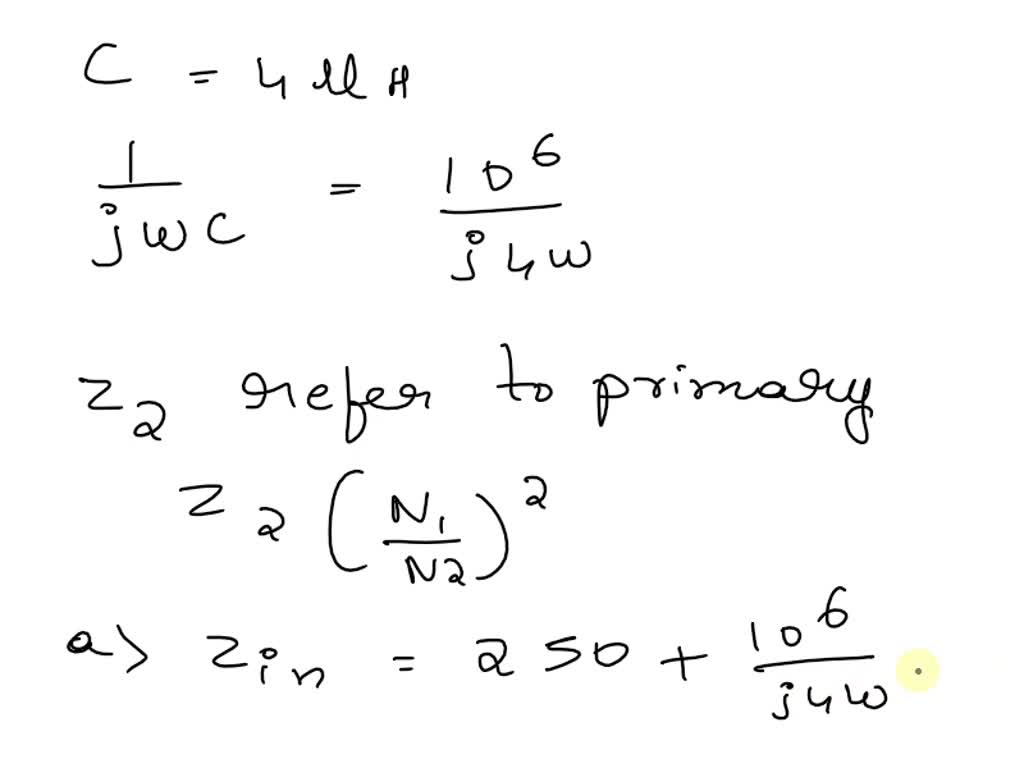 C = 4 µH
1 / jωC = 10^6 / j4ω
Z2 refer to primary
Z2 (N1 / N2)^2
a> Zin = 250 + 10^6 / j4ω